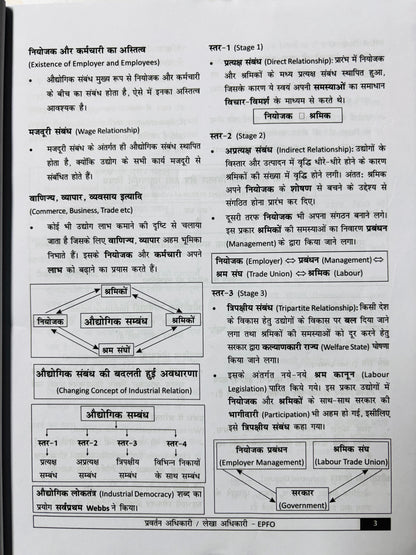 नियोजक और कर्मचारी का अस्तित्व
(Existence of Employer and Employees)
• औद्योगिक संबंध मुख्य रूप से नियोजक और कर्मचारी
के बीच का संबंध होता है, ऐसे में इनका अस्तित्व
आवश्यक है।
मजदूरी संबंध (Wage Relationship)
• मजदूरी संबंध के अंतर्गत ही औद्योगिक संबंध स्थापित
होता है, क्योंकि उद्योग के सभी कार्य मजदूरी से
संबंधित होते हैं।
वाणिज्य, व्यापार, व्यवसाय इत्यादि
(Commerce, Business, Trade etc)
• कोई भी उद्योग लाभ कमाने की दृष्टि से चलाया
जाता है जिसके लिए वाणिज्य, व्यापार अहम भूमिका
निभाते हैं। इसके नियोजक और कर्मचारी अपने
लाभ को बढ़ाने का प्रयास करते हैं।
श्रमिकों
नियोजक
औद्योगिक सम्बंध
श्रमिकों
श्रम संघों
औद्योगिक संबंध की बदलती हुई अवधारणा
(Changing Concept of Industrial Relation)
औद्योगिक सम्बंध
स्तर-1 स्तर-2 स्तर-3 स्तर-4
प्रत्यक्ष अप्रत्यक्ष त्रिपक्षीय विभिन्न निकायों
सम्बंध सम्बंध सम्बंध के साथ सम्बंध
औद्योगिक लोकतंत्र (Industrial Democracy) शब्द का
प्रयोग सर्वप्रथम Webbs ने किया।
स्तर-1 (Stage 1)
• प्रत्यक्ष संबंध (Direct Relationship): प्रारंभ में नियोजक
और श्रमिकों के मध्य प्रत्यक्ष संबंध स्थापित हुआ,
जिसके कारण ये स्वयं अपनी समस्याओं का समाधान
विचार-विमर्श के माध्यम से करते थे।
नियोजक □ श्रमिक
स्तर-2 (Stage 2)
• अप्रत्यक्ष संबंध (Indirect Relationship): उद्योगों के
विस्तार और उत्पादन में वृद्धि धीरे-धीरे होने के कारण
श्रमिकों की संख्या में वृद्धि होने लगी। अंततः श्रमिक
अपने नियोजक के शोषण से बचने के उद्देश्य से
संगठित होना प्रारंभ कर दिए।
• दूसरी तरफ नियोजक भी अपना संगठन बनाने लगे।
इस प्रकार श्रमिकों की समस्याओं का निवारण प्रबंधन
(Management) के द्वारा किया जाने लगा।
नियोजक (Employer) ⇔ प्रबंधन (Management) ⇔
श्रम संघ (Trade Union) ⇔ श्रमिक (Labour)
स्तर-3 (Stage 3)
• त्रिपक्षीय संबंध (Tripartite Relationship): किसी देश
के विकास हेतु उद्योगों के विकास पर बल दिया जाने
लगा तथा श्रमिकों की समस्याओं को दूर करने हेतु
सरकार द्वारा कल्याणकारी राज्य (Welfare State) घोषणा
किया जाने लगा।
• इसके अंतर्गत नये-नये श्रम कानून (Labour
Legislation) पारित किये गये। इस प्रकार उद्योगों में
नियोजक और श्रमिकों के साथ-साथ सरकार की
भागीदारी (Participation) भी अहम हो गई, इसीलिए
इसे त्रिपक्षीय संबंध कहा गया।
नियोजक प्रबंधन
(Employer Management)
श्रमिक संघ
(Labour Trade Union)
सरकार
(Government)
प्रवर्तन अधिकारी / लेखा अधिकारी - EPFO
3